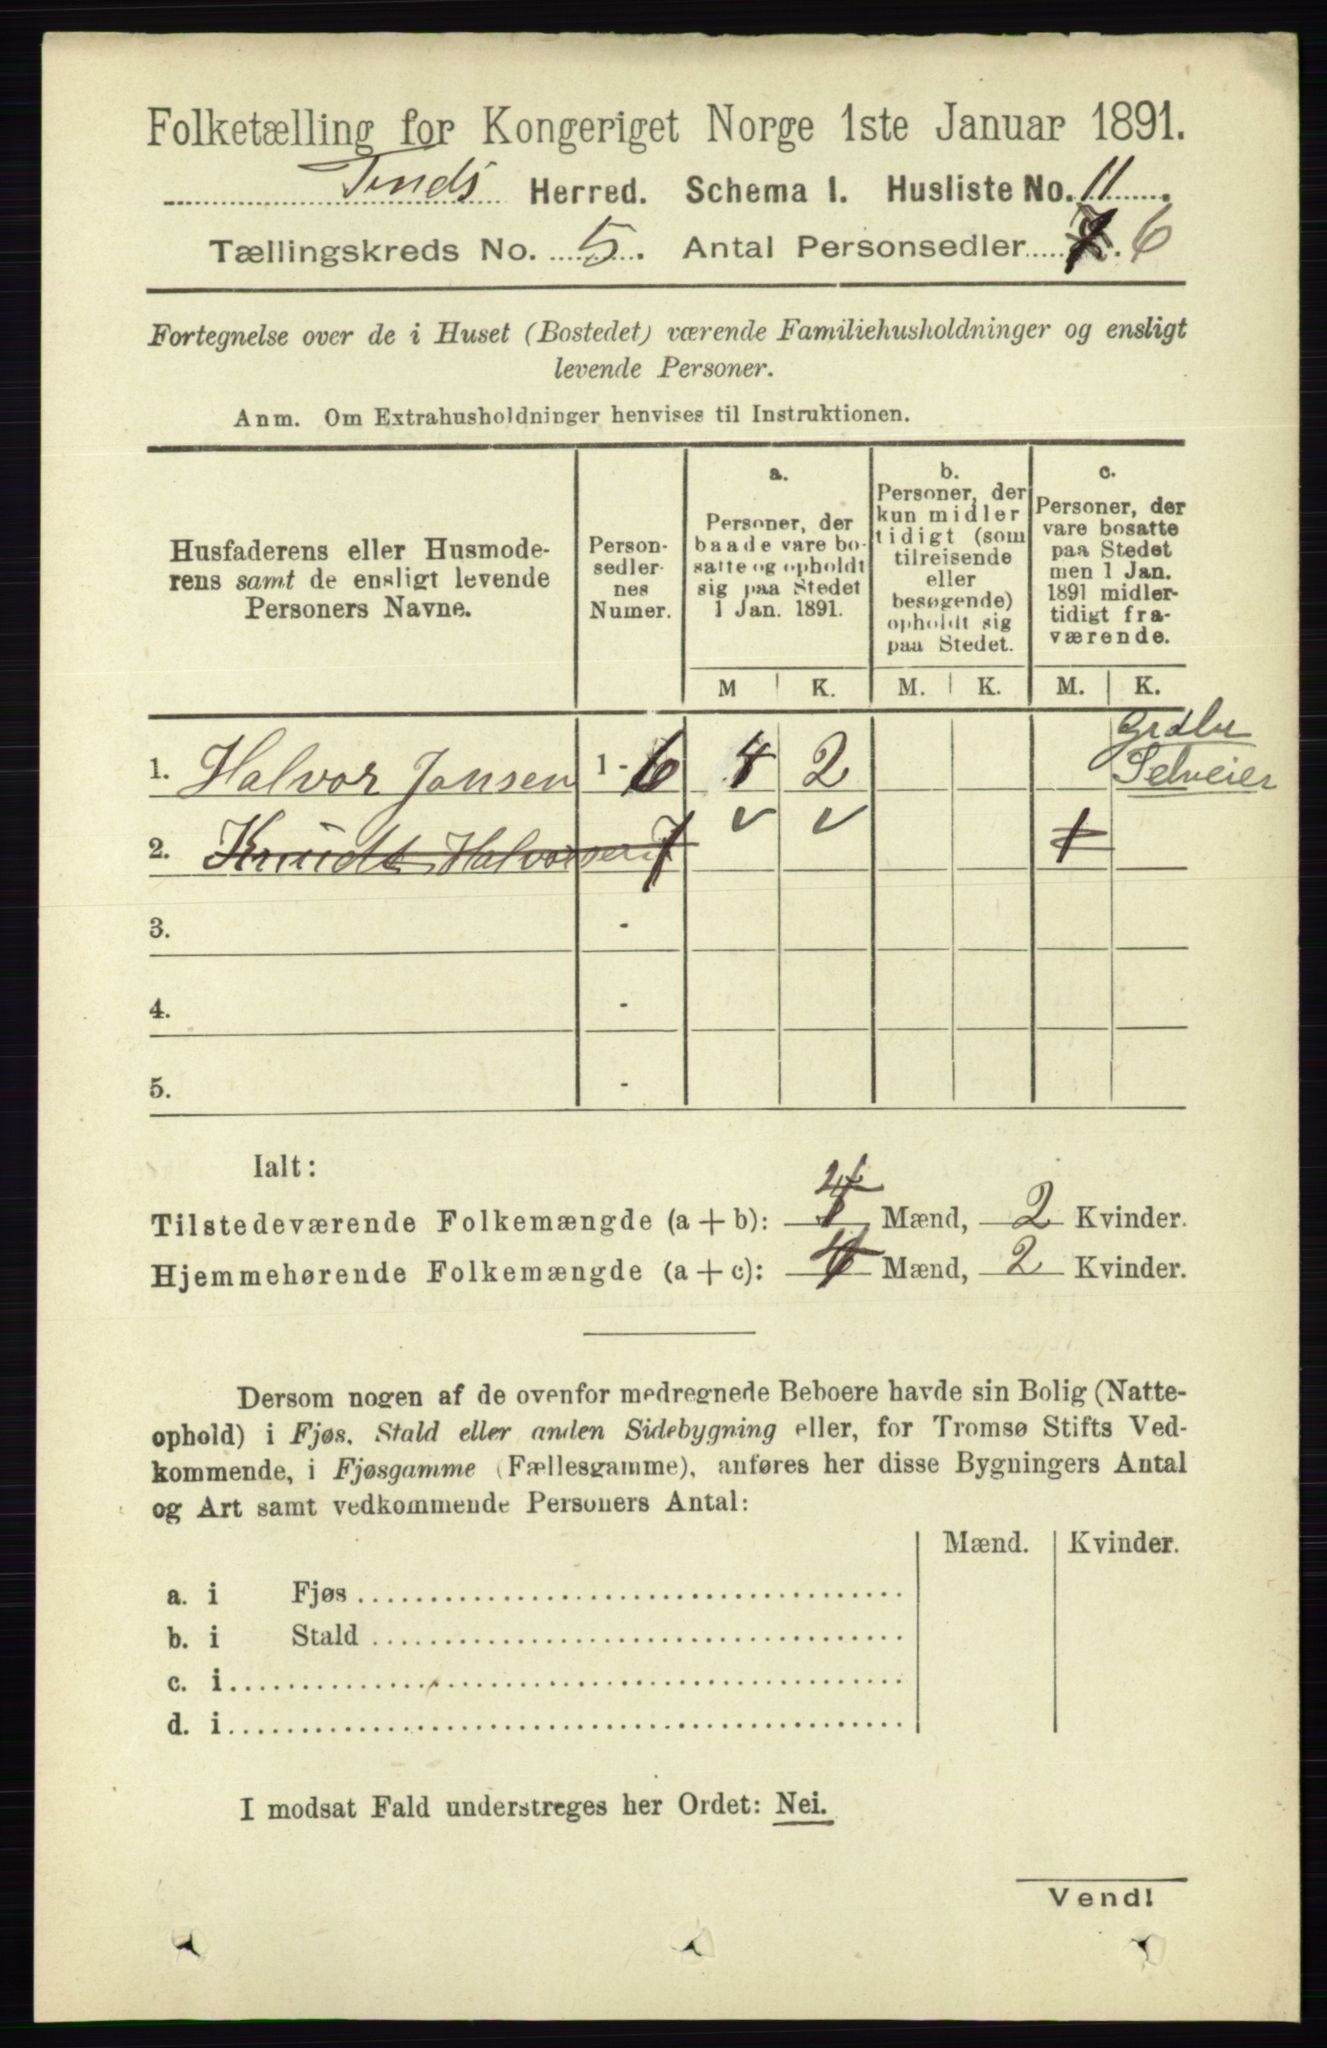 Folketælling for Kongeriget Norge 1ste Januar 1891.
Tinds Herred. Schema 1. Husliste No. 11.
Tællingskreds No. 5. Antal Personsedler 6
Fortegnelse over de i Huset (Bostedet) værende Familiehusholdninger og ensligt
levende Personer.
Anm. Om Extrahusholdninger henvises til Instruktionen.
Husfaderens eller Husmode-
rens samt de ensligt levende
Personers Navne.
Person-
sedler-
nes
Numer.
a.
Personer, der
baade vare bo-
satte og opholdt
sig paa Stedet
1 Jan. 1891.
b.
Personer, der
kun midler
tidigt (som
tilreisende
eller
besøgende)
opholdt sig
paa Stedet.
c.
Personer, der
vare bosatte
paa Stedet
men 1 Jan.
1891 midler-
tidigt fra-
værende.
M K. M. K. M. K.
1. Halvor Jansen 1 - 6 4 2
Selveier
2. Knudt Halvorsen 7
3. -
4. -
5. -
Ialt:
Tilstedeværende Folkemængde (a + b): 4 Mænd, 2 Kvinder.
Hjemmehørende Folkemængde (a + c): 4 Mænd, 2 Kvinder.
Dersom nogen af de ovenfor medregnede Beboere havde sin Bolig (Natte-
ophold) i Fjøs, Stald eller anden Sidebygning eller, for Tromsø Stifts Ved-
kommende, i Fjøsgamme (Fællesgamme), anføres her disse Bygningers Antal
og Art samt vedkommende Personers Antal:
Mænd. Kvinder.
a. i Fjøs
b. i Stald
c. i
d. i
I modsat Fald understreges her Ordet: Nei.
Vend!